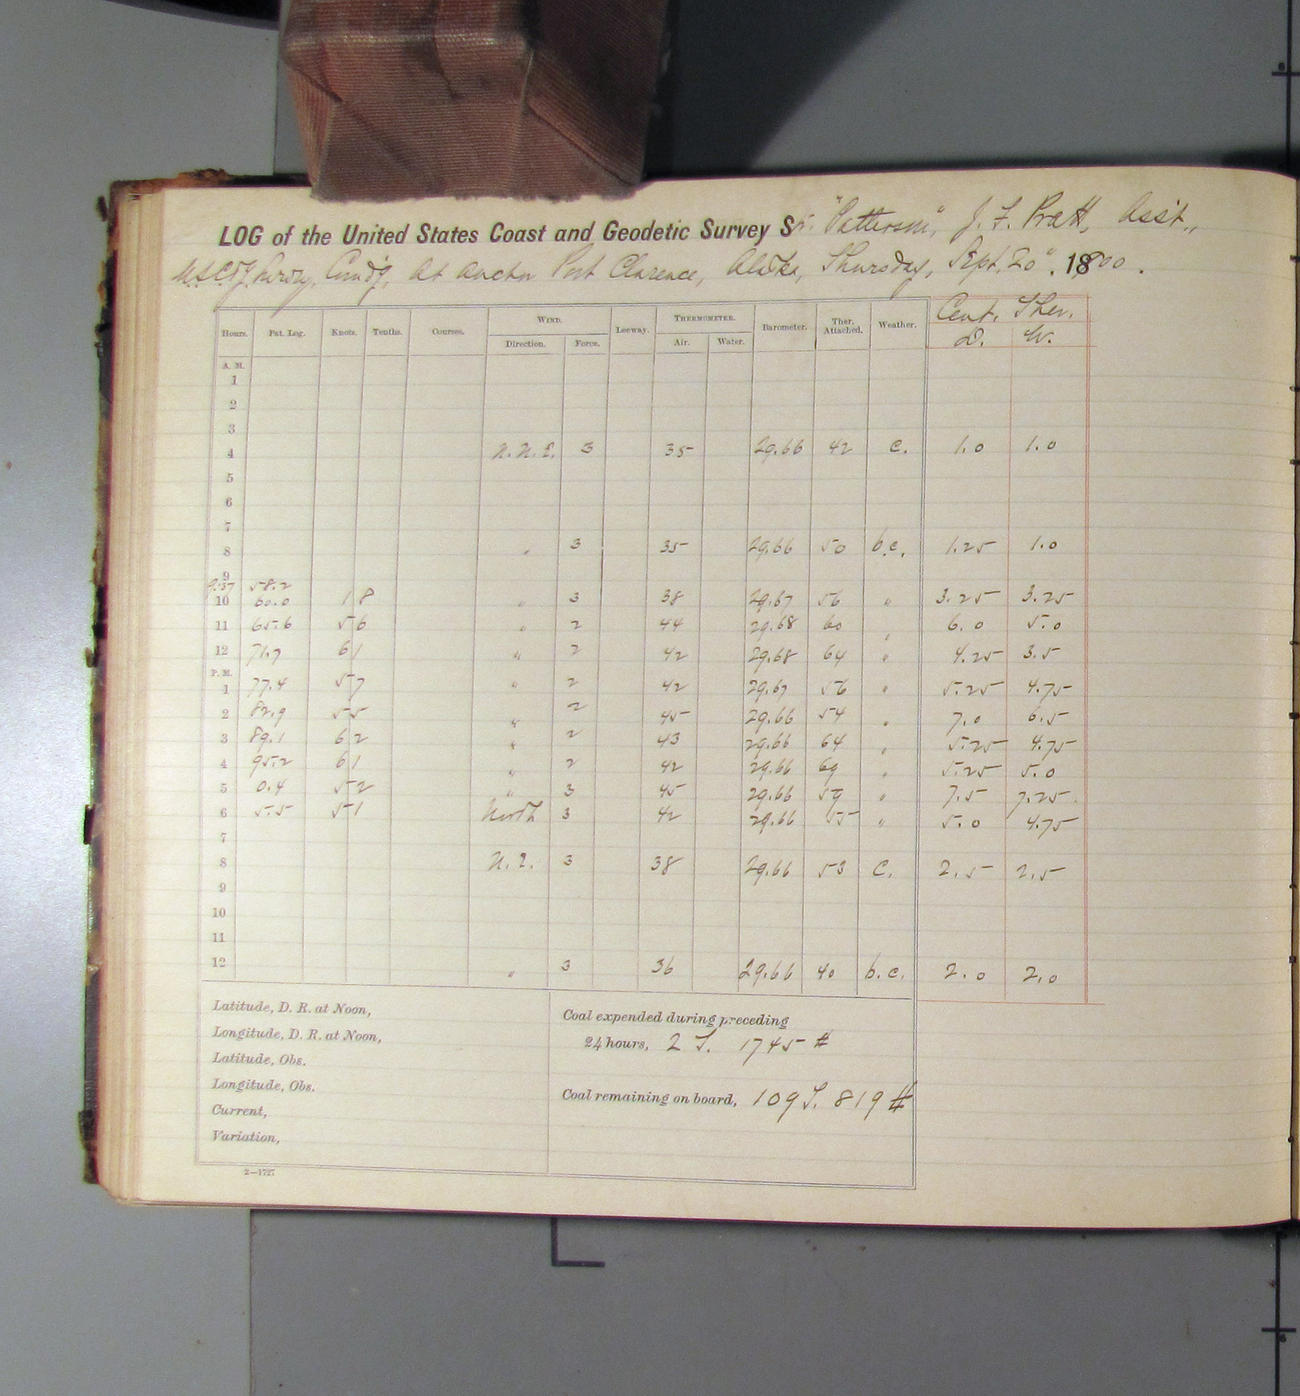 LOG of the United States Coast and Geodetic Survey Str. "Patterson", J. F. Pratt, Ass't.,
U.S.C.&G. Survey, Comd'g, At anchor Port Clarence, Alaska, Thursday, Sept. 20", 1900.
Hours. Pat. Log. Knots. Tenths. Courses. WIND. Leeway. THERMOMETER. Barometer. Ther. Attached. Weather. Cent. Ther.
Direction. Force. Air. Water. D. W.
A. M.
1
2
3
4 N.N.E. 3 35 29.66 42 c. 1.0 1.0
5
6
7
8 " 3 35 29.66 50 b.c. 1.25 1.0
9
9:37 58.2
10 60.0 1 8 " 3 38 29.67 56 " 3.25 3.25
11 65.6 5 6 " 2 44 29.68 60 " 6.0 5.0
12 71.7 6 1 " 2 42 29.68 64 " 4.25 3.5
P. M.
1 77.4 5 7 " 2 42 29.67 56 " 5.25 4.75
2 82.9 5 5 " 2 45 29.66 54 " 7.0 6.5
3 89.1 6 2 " 2 43 29.66 64 " 5.25 4.75
4 95.2 6 1 " 2 42 29.66 69 " 5.25 5.0
5 0.4 5 2 " 3 45 29.66 59 " 7.5 7.25
6 5.5 5 1 North 3 42 29.66 55 " 5.0 4.75
7
8 N.E. 3 38 29.66 53 C. 2.5 2.5
9
10
11
12 " 3 36 29.66 40 b.c. 2.0 2.0
Latitude, D. R. at Noon,
Longitude, D. R. at Noon,
Latitude, Obs.
Longitude, Obs.
Current,
Variation,
Coal expended during preceding
24 hours, 2 T. 1745 #
Coal remaining on board, 109 T. 819 #
2—1727